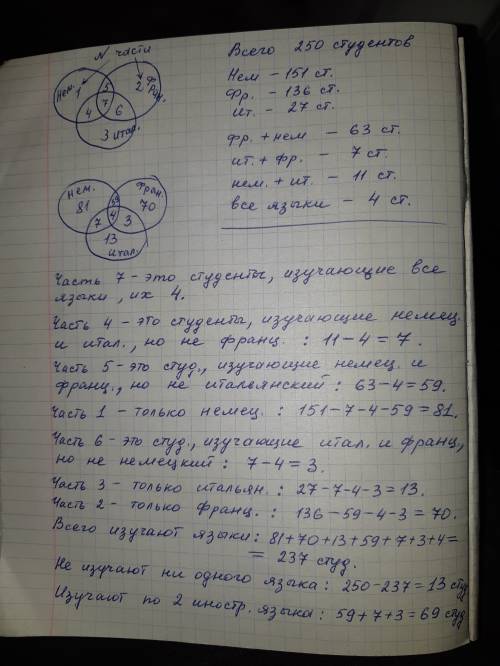 N части
Нем. 1
5
2 Фран.
7
4
6
3 итал.
Всего 250 студентов
Нем - 151 ст.
Фр. - 136 ст.
ит. - 27 ст.
фр. + нем - 63 ст.
ит. + фр. - 7 ст.
нем. + ит. - 11 ст.
все языки - 4 ст.
нем.
фран.
81
59
70
7
4
3
13
итал.
Часть 7 - это студенты, изучающие все
языки, их 4.
Часть 4 - это студенты, изучающие немец.
и итал., но не франц. : 11-4=7.
Часть 5 - это студ., изучающие немец. и
франц., но не итальянский : 63-4=59.
Часть 1 - только немец. : 151-7-4-59=81.
Часть 6 - это студ., изучающие итал. и франц.,
но не немецкий : 7-4=3.
Часть 3 - только итальян. : 27-7-4-3=13.
Часть 2 - только франц. : 136-59-4-3=70.
Всего изучают языки : 81+70+13+59+7+3+4=
= 237 студ.
Не изучают ни одного языка : 250-237=13 студ
Изучают по 2 иностр. языка : 59+7+3=69 студ